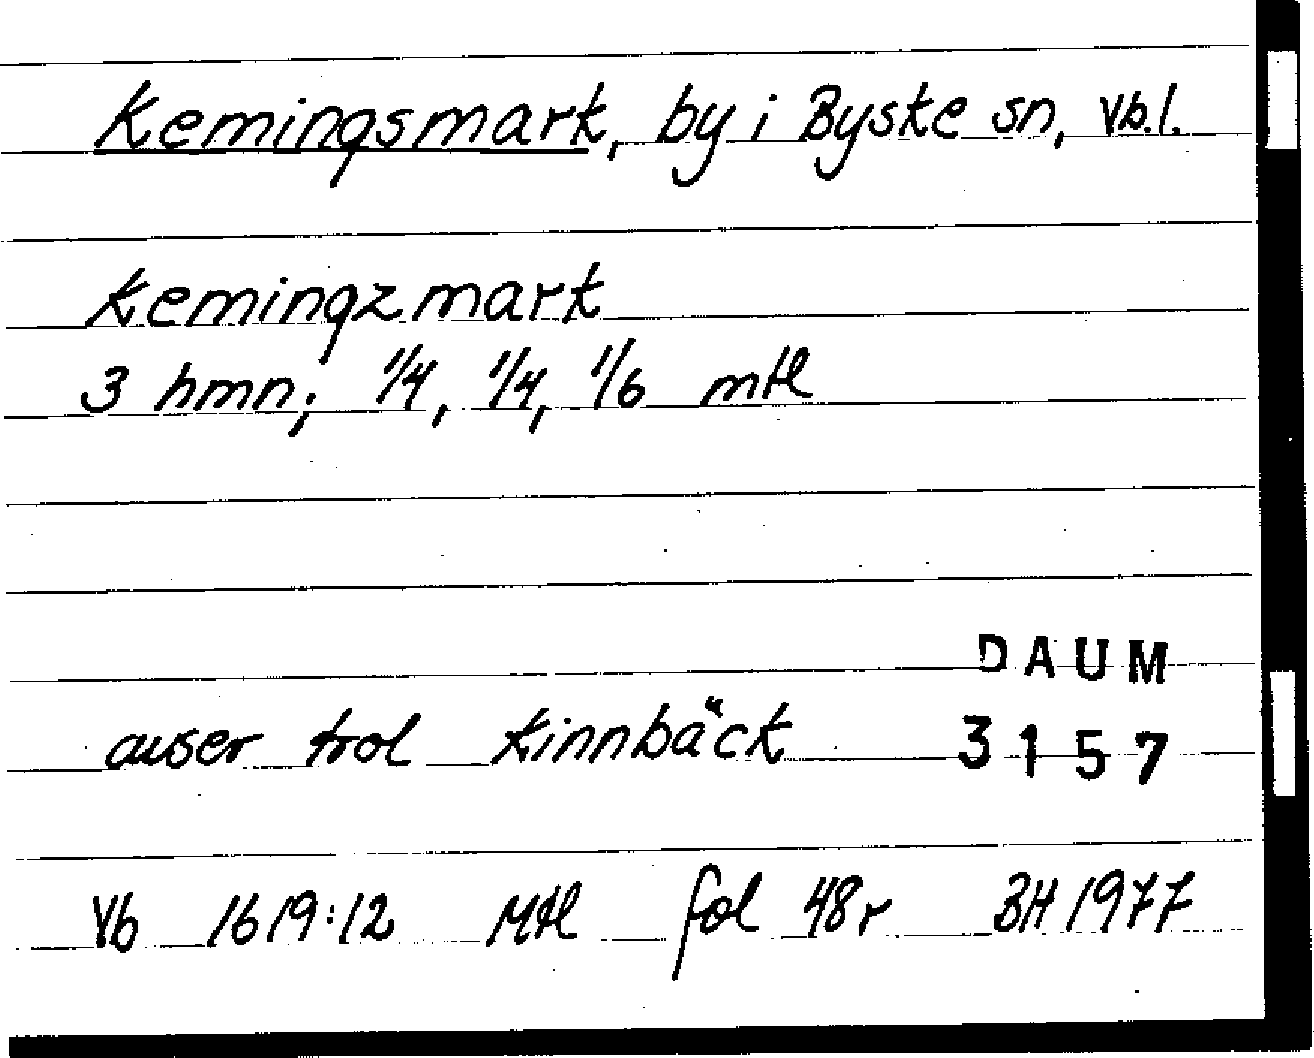 Kemingsmark, by i Byske sn, Vb.l.
Kemingzmark
3 hmn; 1/4, 1/4, 1/6 mtl
DAUM
avser trol Kinnbäck 3157
Vb 1619:12 Mtl fol 48r BH 1977